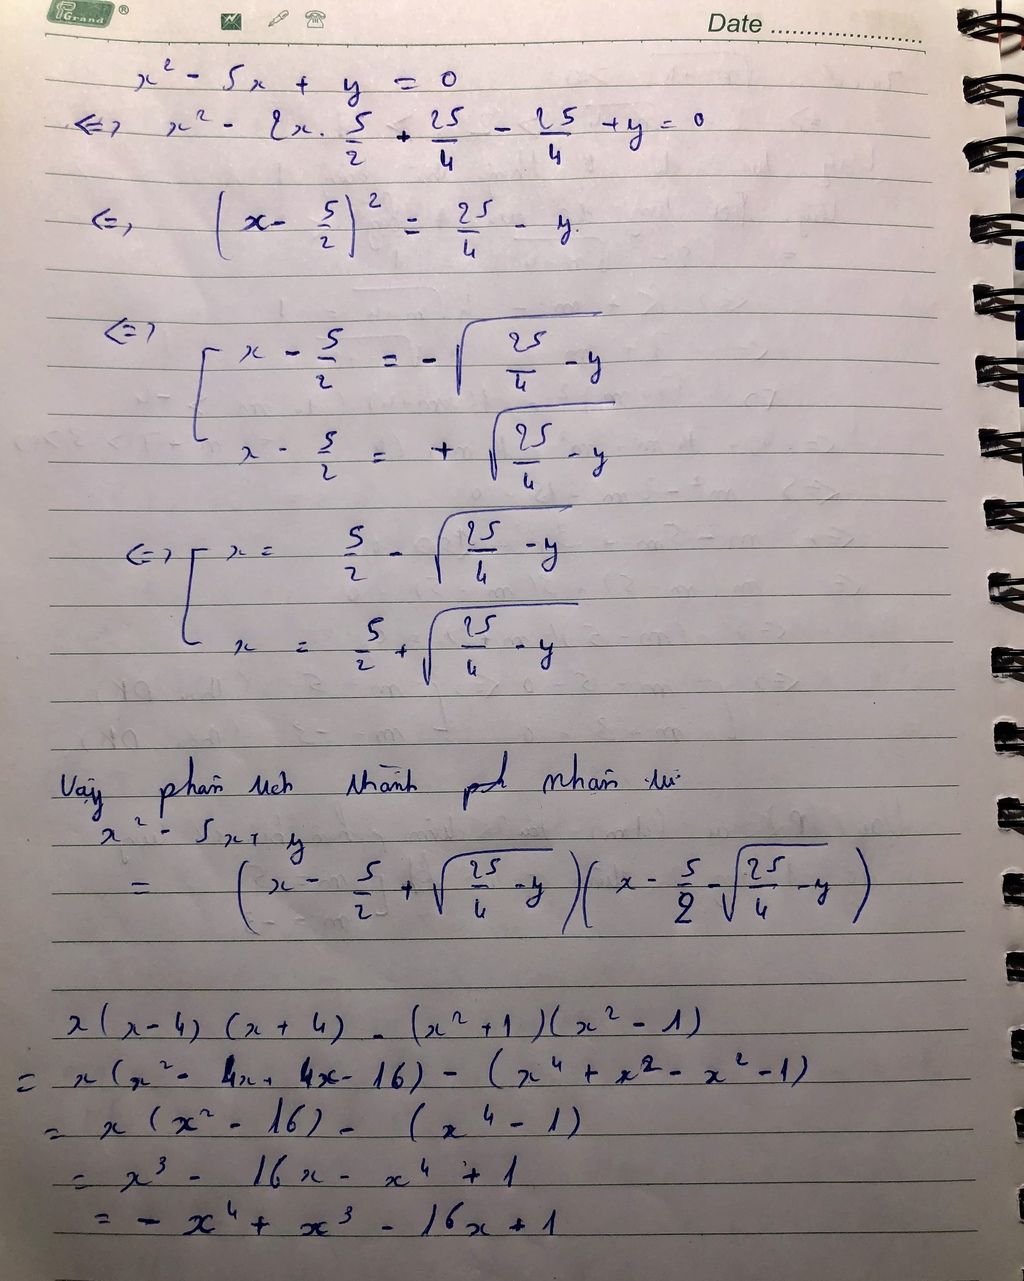 Grand ®
Date
x² - 5x + y = 0
<=> x² - 2x. 5/2 + 25/4 - 25/4 + y = 0
<=> (x - 5/2)² = 25/4 - y.
<=> [ x - 5/2 = - √(25/4 - y)
x - 5/2 = + √(25/4 - y)
<=> [ x = 5/2 - √(25/4 - y)
x = 5/2 + √(25/4 - y)
Vậy phân tích thành nhân tử
x² - 5x + y
= (x - 5/2 + √(25/4 - y))(x - 5/2 - √(25/4 - y))
x(x-4) (x+4) - (x²+1)(x²-1)
= x(x² - 4x + 4x - 16) - (x⁴ + x² - x² - 1)
= x(x² - 16) - (x⁴ - 1)
= x³ - 16x - x⁴ + 1
= - x⁴ + x³ - 16x + 1